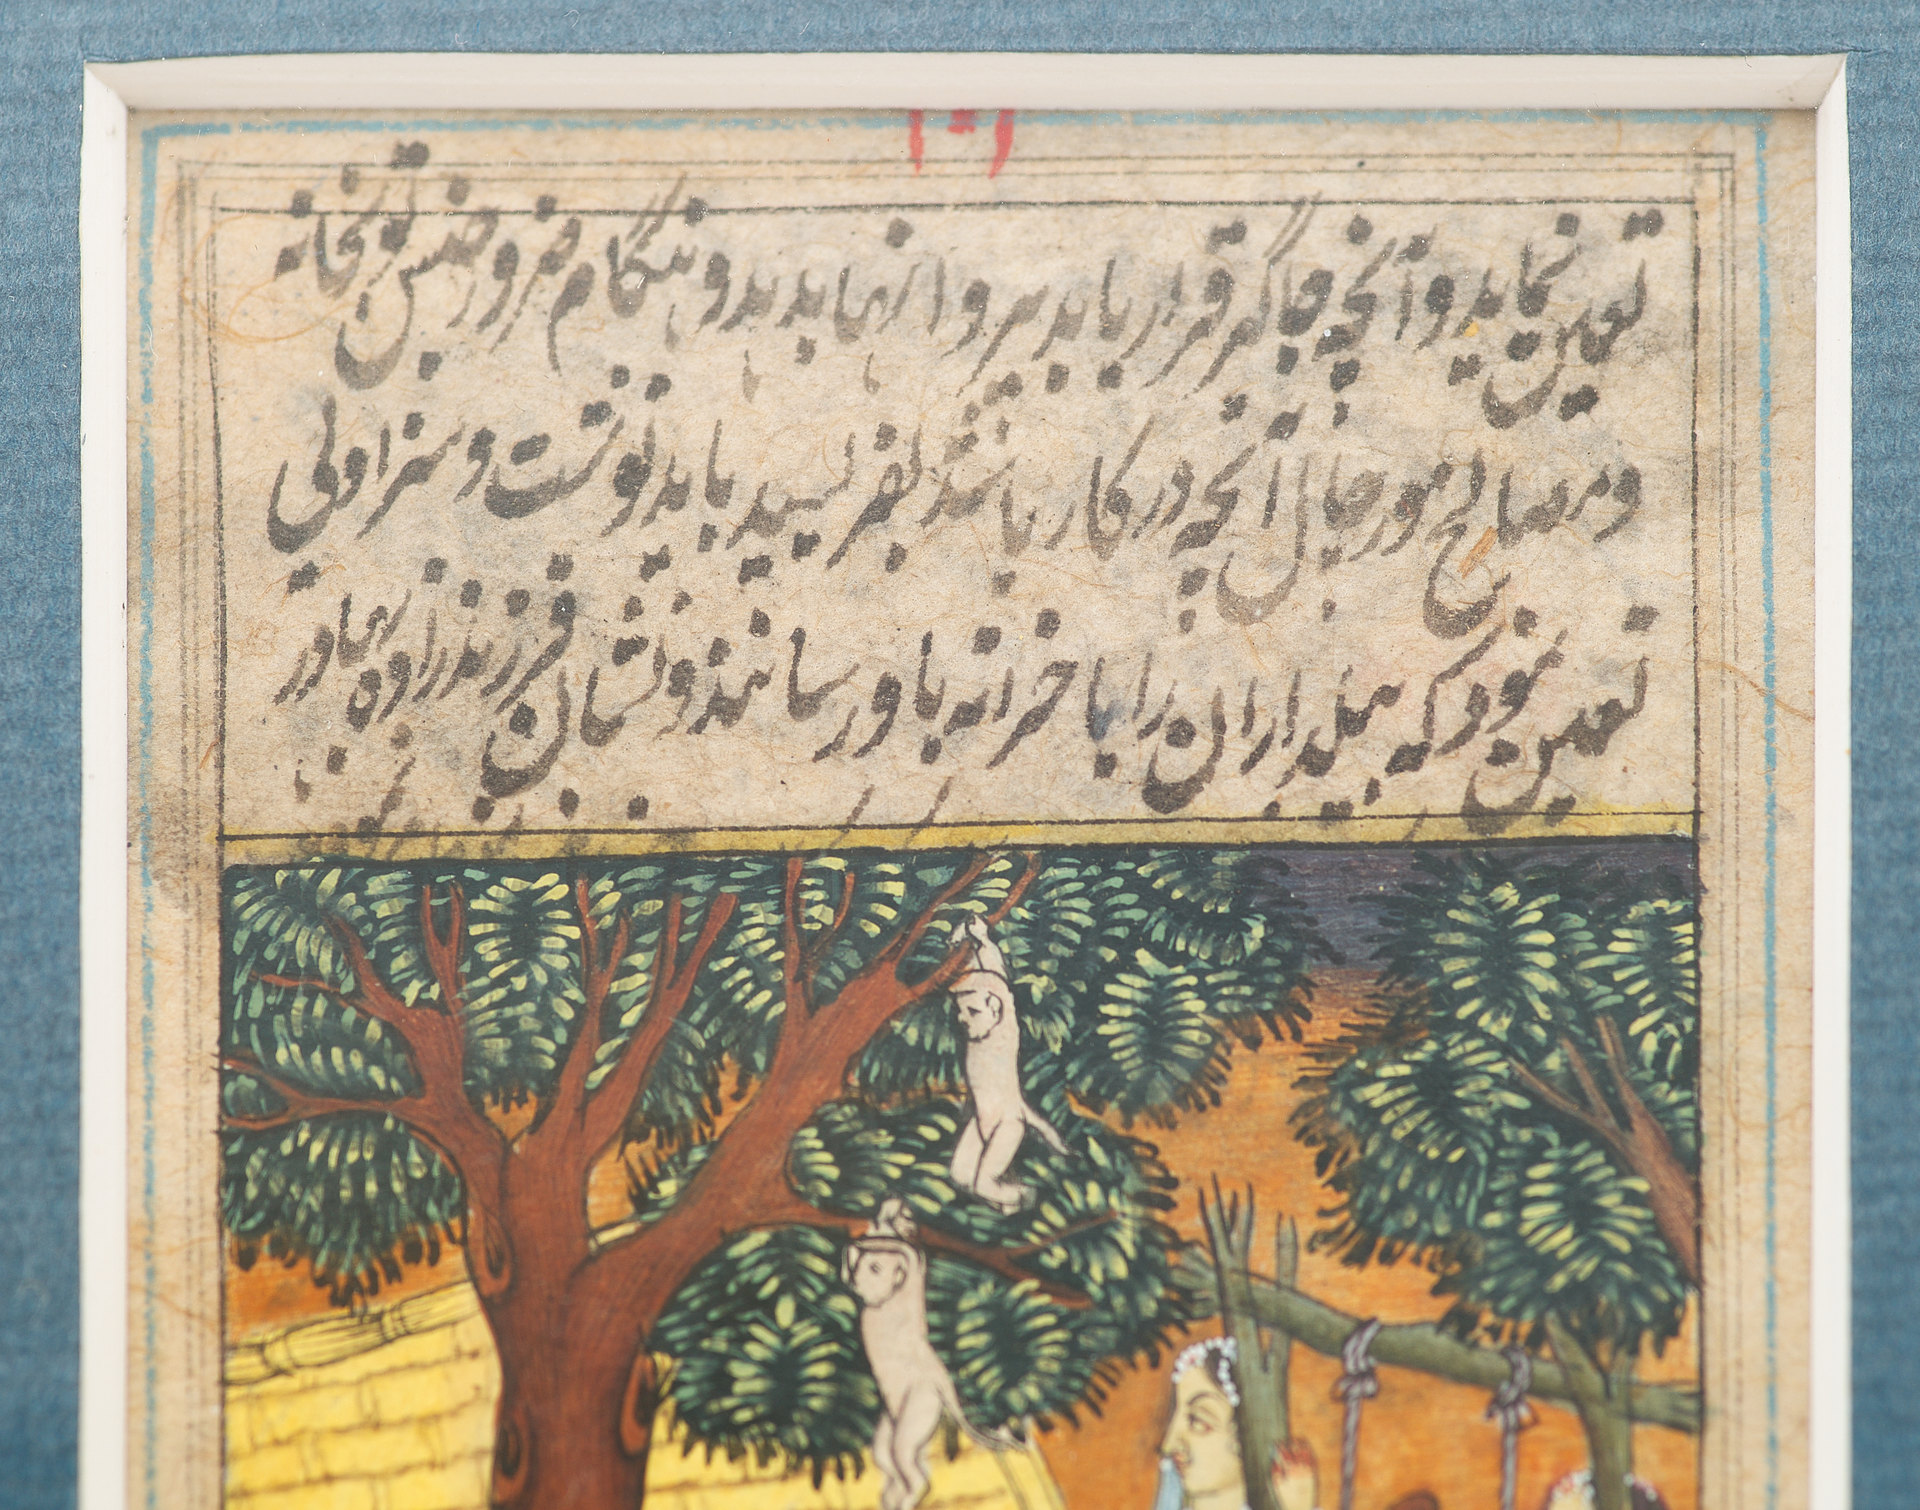 تعین نماید و آنچه جاگیر قرار یابد بیرو ازنها بدید و هنگام و جنس توپخانه
و مصالح مورچال آنچه در کار باشد بفرستید باید نوشت و سزاولی
تعین نمود که بیلداران را با خزانه باو رسانند و نشان فرزندزاده بهادر